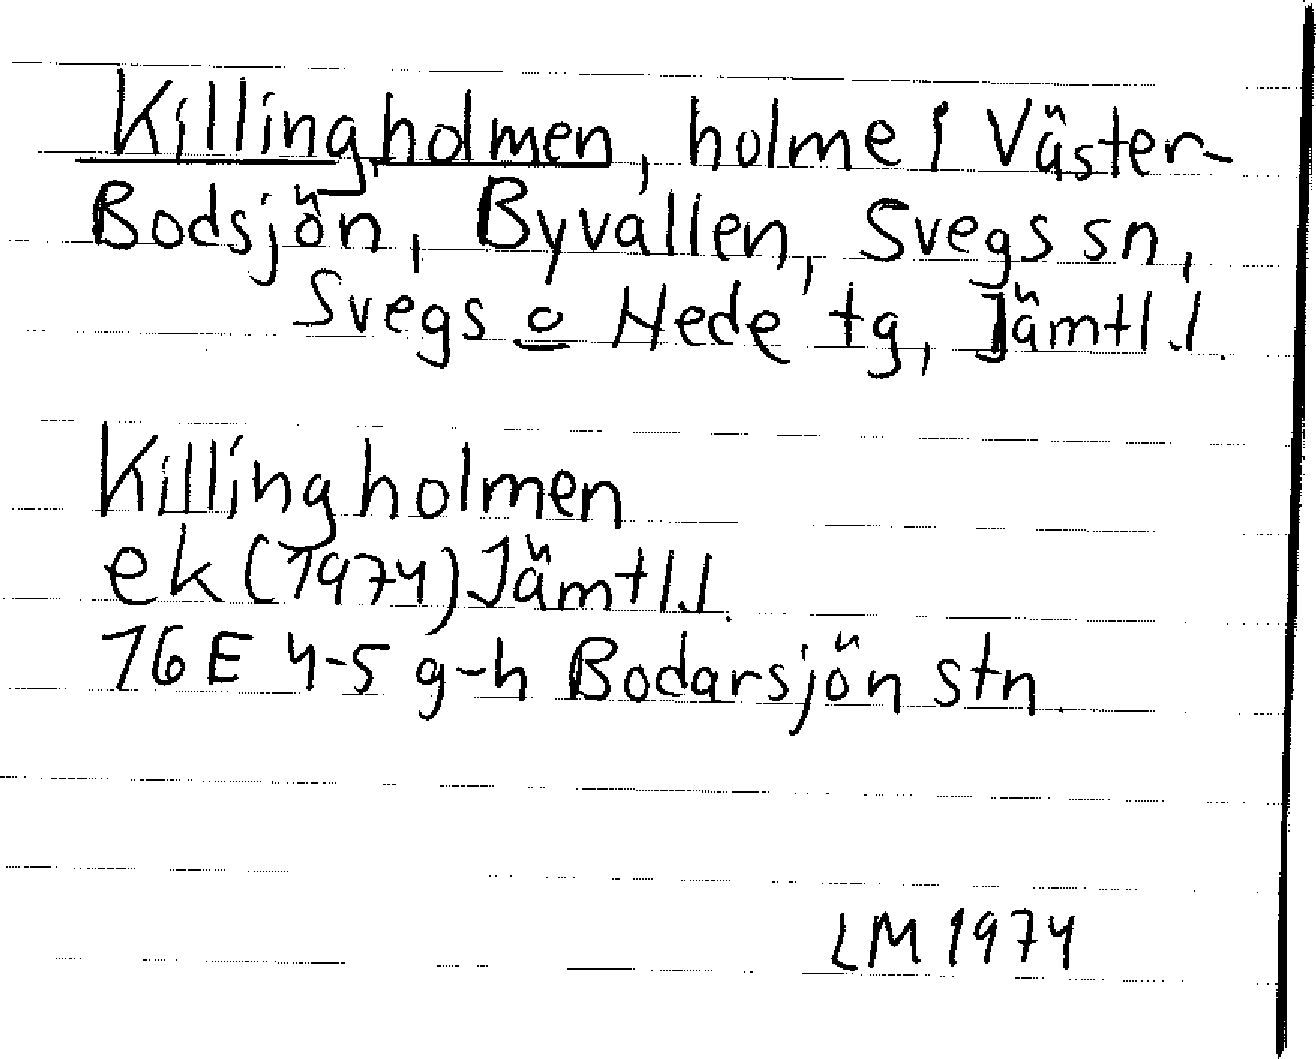 Killingholmen, holme i Väster-
Bodsjön, Byvallen, Svegs sn,
Svegs o Hede tg, Jämtl.l.
Killingholmen
ek (1974) Jämtl.l.
16E 4-5 g-h Bodarsjön stn.
LM 1974